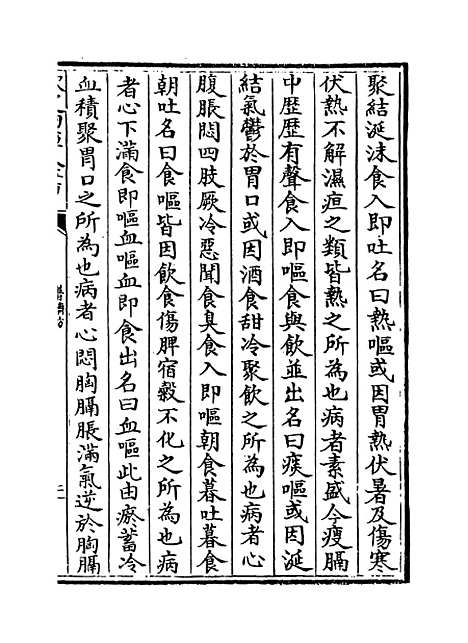 聚結涎沫食入即吐名曰熱嘔或因胃熱伏暑及傷寒
伏熱不解濕疸之類皆熱之所為也病者素盛今瘦膈
中歴歴有聲食入即嘔食與飲並出名曰痰嘔或因涎
結氣鬱於胃口或因酒食甜冷聚飲之所為也病者心
腹脹悶四肢厥冷惡聞食臭食入即嘔朝食暮吐暮食
朝吐名曰食嘔皆因飲食傷脾宿穀不化之所為也病
者心下滿食即嘔血嘔血即食出名曰血嘔此由瘀蓄冷
血積聚胃口之所為也病者心悶胸膈脹滿氣逆於胸膈
普濟方